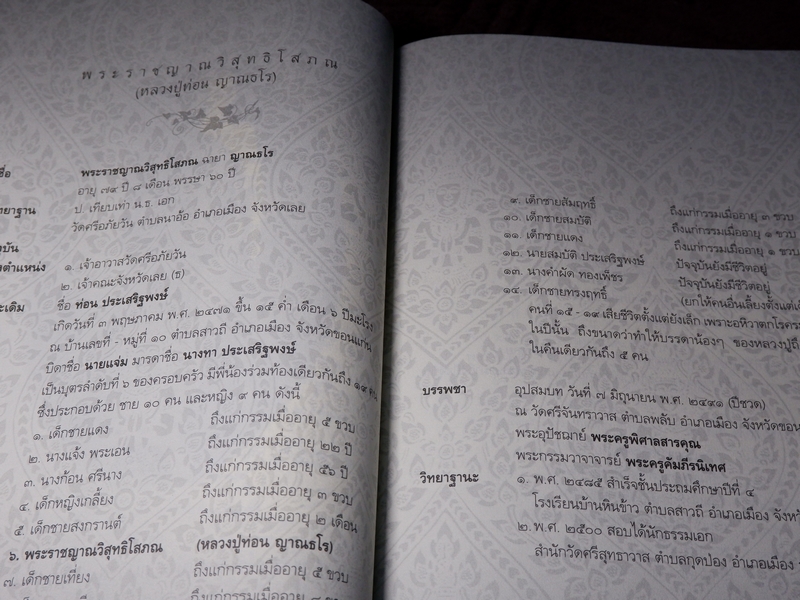 พระราชญาณวิสุทธิโสภณ
(หลวงปู่ท่อน ญาณธโร)
ชื่อ พระราชญาณวิสุทธิโสภณ ฉายา ญาณธโร
อายุ ๗๙ ปี ๘ เดือน พรรษา ๖๐ ปี
ป. เทียบเท่า น.ธ. เอก
วัดศรีอภัยวัน ตำบลนาอ้อ อำเภอเมือง จังหวัดเลย
๑. เจ้าอาวาสวัดศรีอภัยวัน
ตำแหน่ง ๒. เจ้าคณะจังหวัดเลย (ธ)
ชื่อ ท่อน ประเสริฐพงษ์
เกิดวันที่ ๓ พฤษภาคม พ.ศ. ๒๔๗๑ ขึ้น ๑๕ ค่ำ เดือน ๖ ปีมะโรง
ณ บ้านเลขที่ - หมู่ที่ ๑๐ ตำบลสาวถี อำเภอเมือง จังหวัดขอนแก่น
บิดาชื่อ นายแจ่ม มารดาชื่อ นางทา ประเสริฐพงษ์
เป็นบุตรลำดับที่ ๖ ของครอบครัว มีพี่น้องร่วมท้องเดียวกันถึง ๑๙ คน
ซึ่งประกอบด้วย ชาย ๑๐ คน และหญิง ๙ คน ดังนี้
๑. เด็กชายแดง ถึงแก่กรรมเมื่ออายุ ๕ ขวบ
๒. นางแจ้ง พระเอน ถึงแก่กรรมเมื่ออายุ ๒๒ ปี
๓. นางก้อน ศรีนาง ถึงแก่กรรมเมื่ออายุ ๕๖ ปี
๔. เด็กหญิงเกลี้ยง ถึงแก่กรรมเมื่ออายุ ๓ ขวบ
๕. เด็กชายสงกรานต์ ถึงแก่กรรมเมื่ออายุ ๒ เดือน
๖. พระราชญาณวิสุทธิโสภณ (หลวงปู่ท่อน ญาณธโร)
๗. เด็กชายเที่ยง ถึงแก่กรรมเมื่ออายุ ๕ ขวบ
๙. เด็กชายสัมฤทธิ์ ถึงแก่กรรมเมื่ออายุ ๓ ขวบ
๑๐. เด็กชายสมบัติ ถึงแก่กรรมเมื่ออายุ ๑ ขวบ
๑๑. เด็กชายแดง ถึงแก่กรรมเมื่ออายุ ๑ ขวบ
๑๒. นายสมบัติ ประเสริฐพงษ์ ปัจจุบันยังมีชีวิตอยู่
๑๓. นางคำผัด ทองเพ็ชร ปัจจุบันยังมีชีวิตอยู่
๑๔. เด็กชายทรงฤทธิ์ (ยกให้คนอื่นเลี้ยงตั้งแต่
คนที่ ๑๕ - ๑๙ เสียชีวิตตั้งแต่ยังเล็ก เพราะอหิวาตกโรค
ในปีนั้น ถึงขนาดว่าทำให้บรรดาน้องๆ ของหลวงปู่
ในคืนเดียวกันถึง ๕ คน
บรรพชา อุปสมบท วันที่ ๗ มิถุนายน พ.ศ. ๒๔๙๑ (ปีชวด)
ณ วัดศรีจันทราวาส ตำบลพลับ อำเภอเมือง จังหวัดขอน
พระอุปัชฌาย์ พระครูพิศาลสารคุณ
พระกรรมวาจาจารย์ พระครูคัมภีรนิเทศ
วิทยาฐานะ ๑. พ.ศ. ๒๔๘๕ สำเร็จชั้นประถมศึกษาปีที่ ๔
โรงเรียนบ้านหินข้าว ตำบลสาวถี อำเภอเมือง
๒. พ.ศ. ๒๕๐๐ สอบได้นักธรรมเอก
สำนักวัดศรีสุทธาวาส ตำบลกุดป่อง อำเภอเมือง